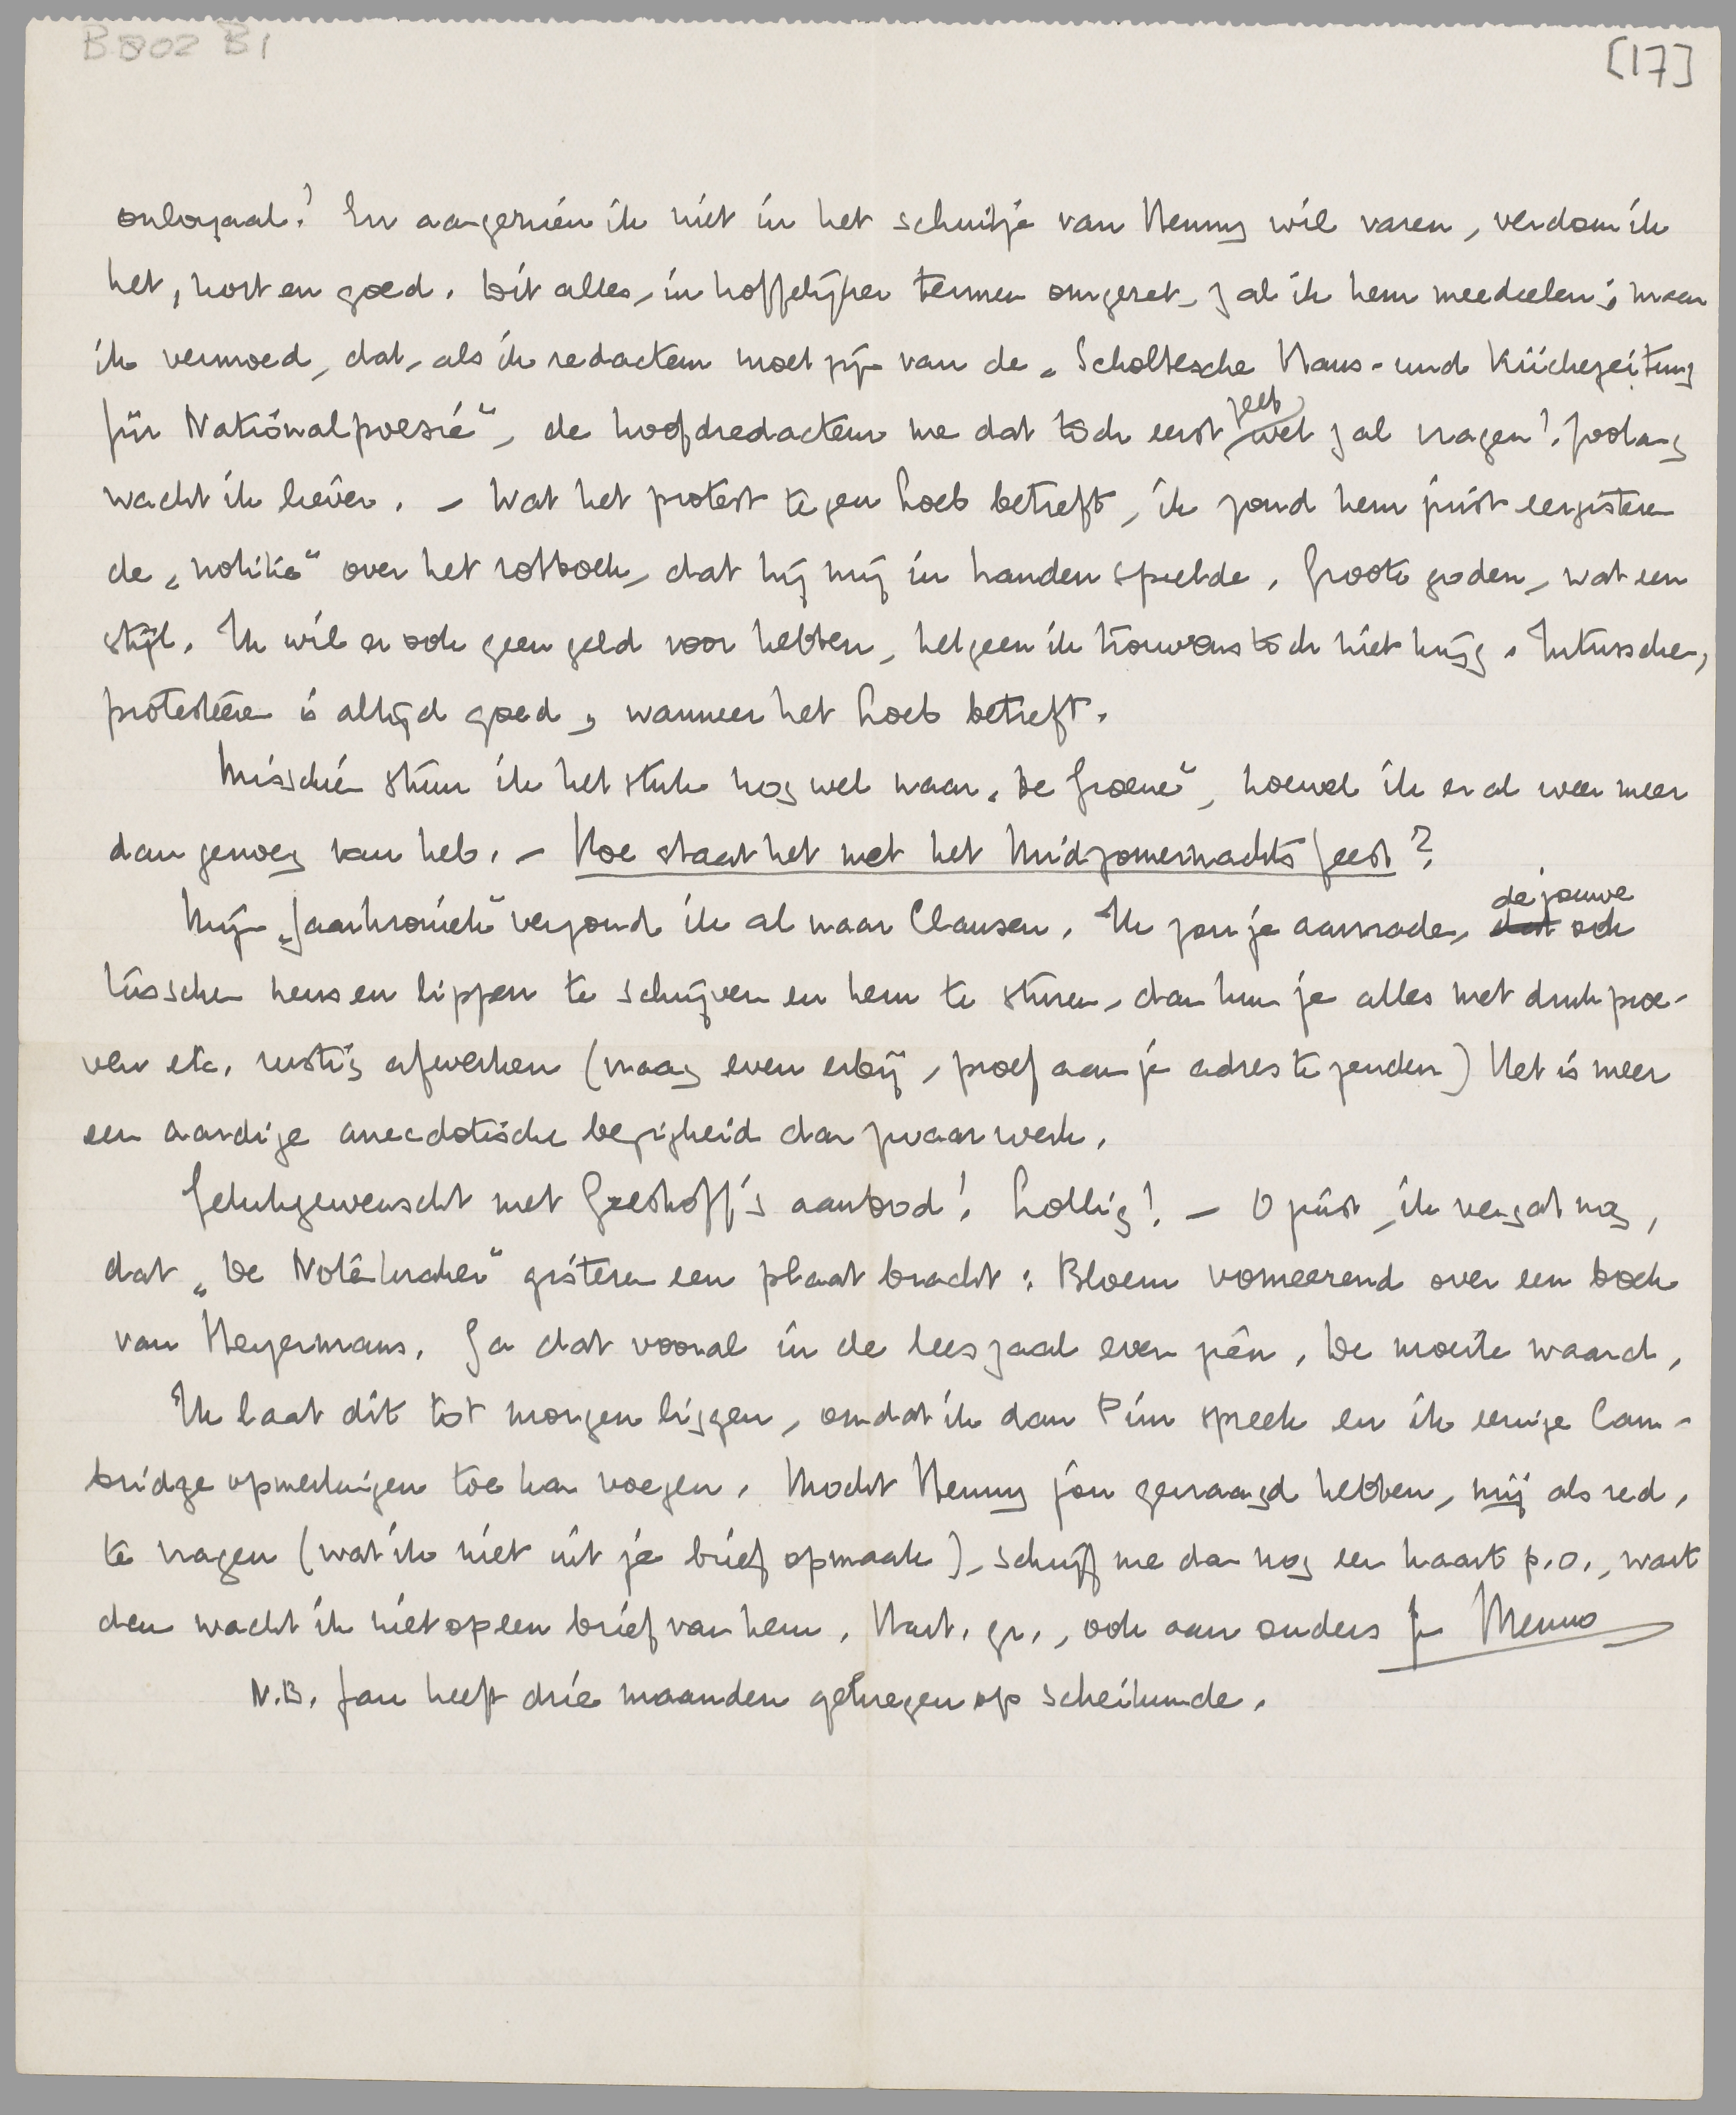 B 802 B 1
[17]
onloyaal! En aangezien ik niet in het schuitje van Henny wil varen, verdom ik
het, kort en goed. Dit alles, in hoffelijker termen omgezet, zal ik hem meedeelen; maar
ik vermoed, dat, als ik redacteur moet zijn van de „Scholtesche Haus- und Küchezeitung
für Nationalpoesie", de hoofdredacteur me dat toch eerst zelf wel zal vragen! Zoolang
wacht ik liever. – Wat het protest tegen Loeb betreft, ik zond hem juist eergisteren
de „notitie" over het rotboek, dat hij mij in handen speelde. Groote goden, wat een
stijl. Ik wil er ook geen geld voor hebben, hetgeen ik trouwens toch niet krijg. Intusschen,
protesteeren is altijd goed, wanneer het Loeb betreft.
Misschien stuur ik het stuk nog wel naar „De Groene", hoewel ik er al weer meer
dan genoeg van heb. – Hoe staat het met het Midzomernachtsfeest?
Mijn „Jaarkroniek" verzond ik al naar Clausen. Ik zou je aanraden, dat de jouwe ook
tusschen neus en lippen te schrijven en hem te sturen, dan kun je alles met drukproe-
ven etc. rustig afwerken (vraag even erbij, proef aan je adres te zenden) Het is meer
een aardige anecdotische bezigheid dan zwaar werk.
Gelukgewenscht met Greshoff's aanbod! Lollig! – O juist, ik vergat nog,
dat „De Notenkraker" gisteren een plaat bracht: Bloem vomeerend over een boek
van Heyermans. Ga dat vooral in de leeszaal even zien. De moeite waard.
Ik laat dit tot morgen liggen, omdat ik dan Pim spreek en ik eenige Cam-
bridge opmerkingen toe kan voegen. Mocht Henny jou gevraagd hebben, mij als red.
te vragen (wat ik niet uit je brief opmaak), schrijf me dan nog een kaart p.o., want
dan wacht ik niet op een brief van hem. Hart. gr., ook aan ouders je Menno
N.B. Jan heeft drie maanden gekregen op scheikunde.